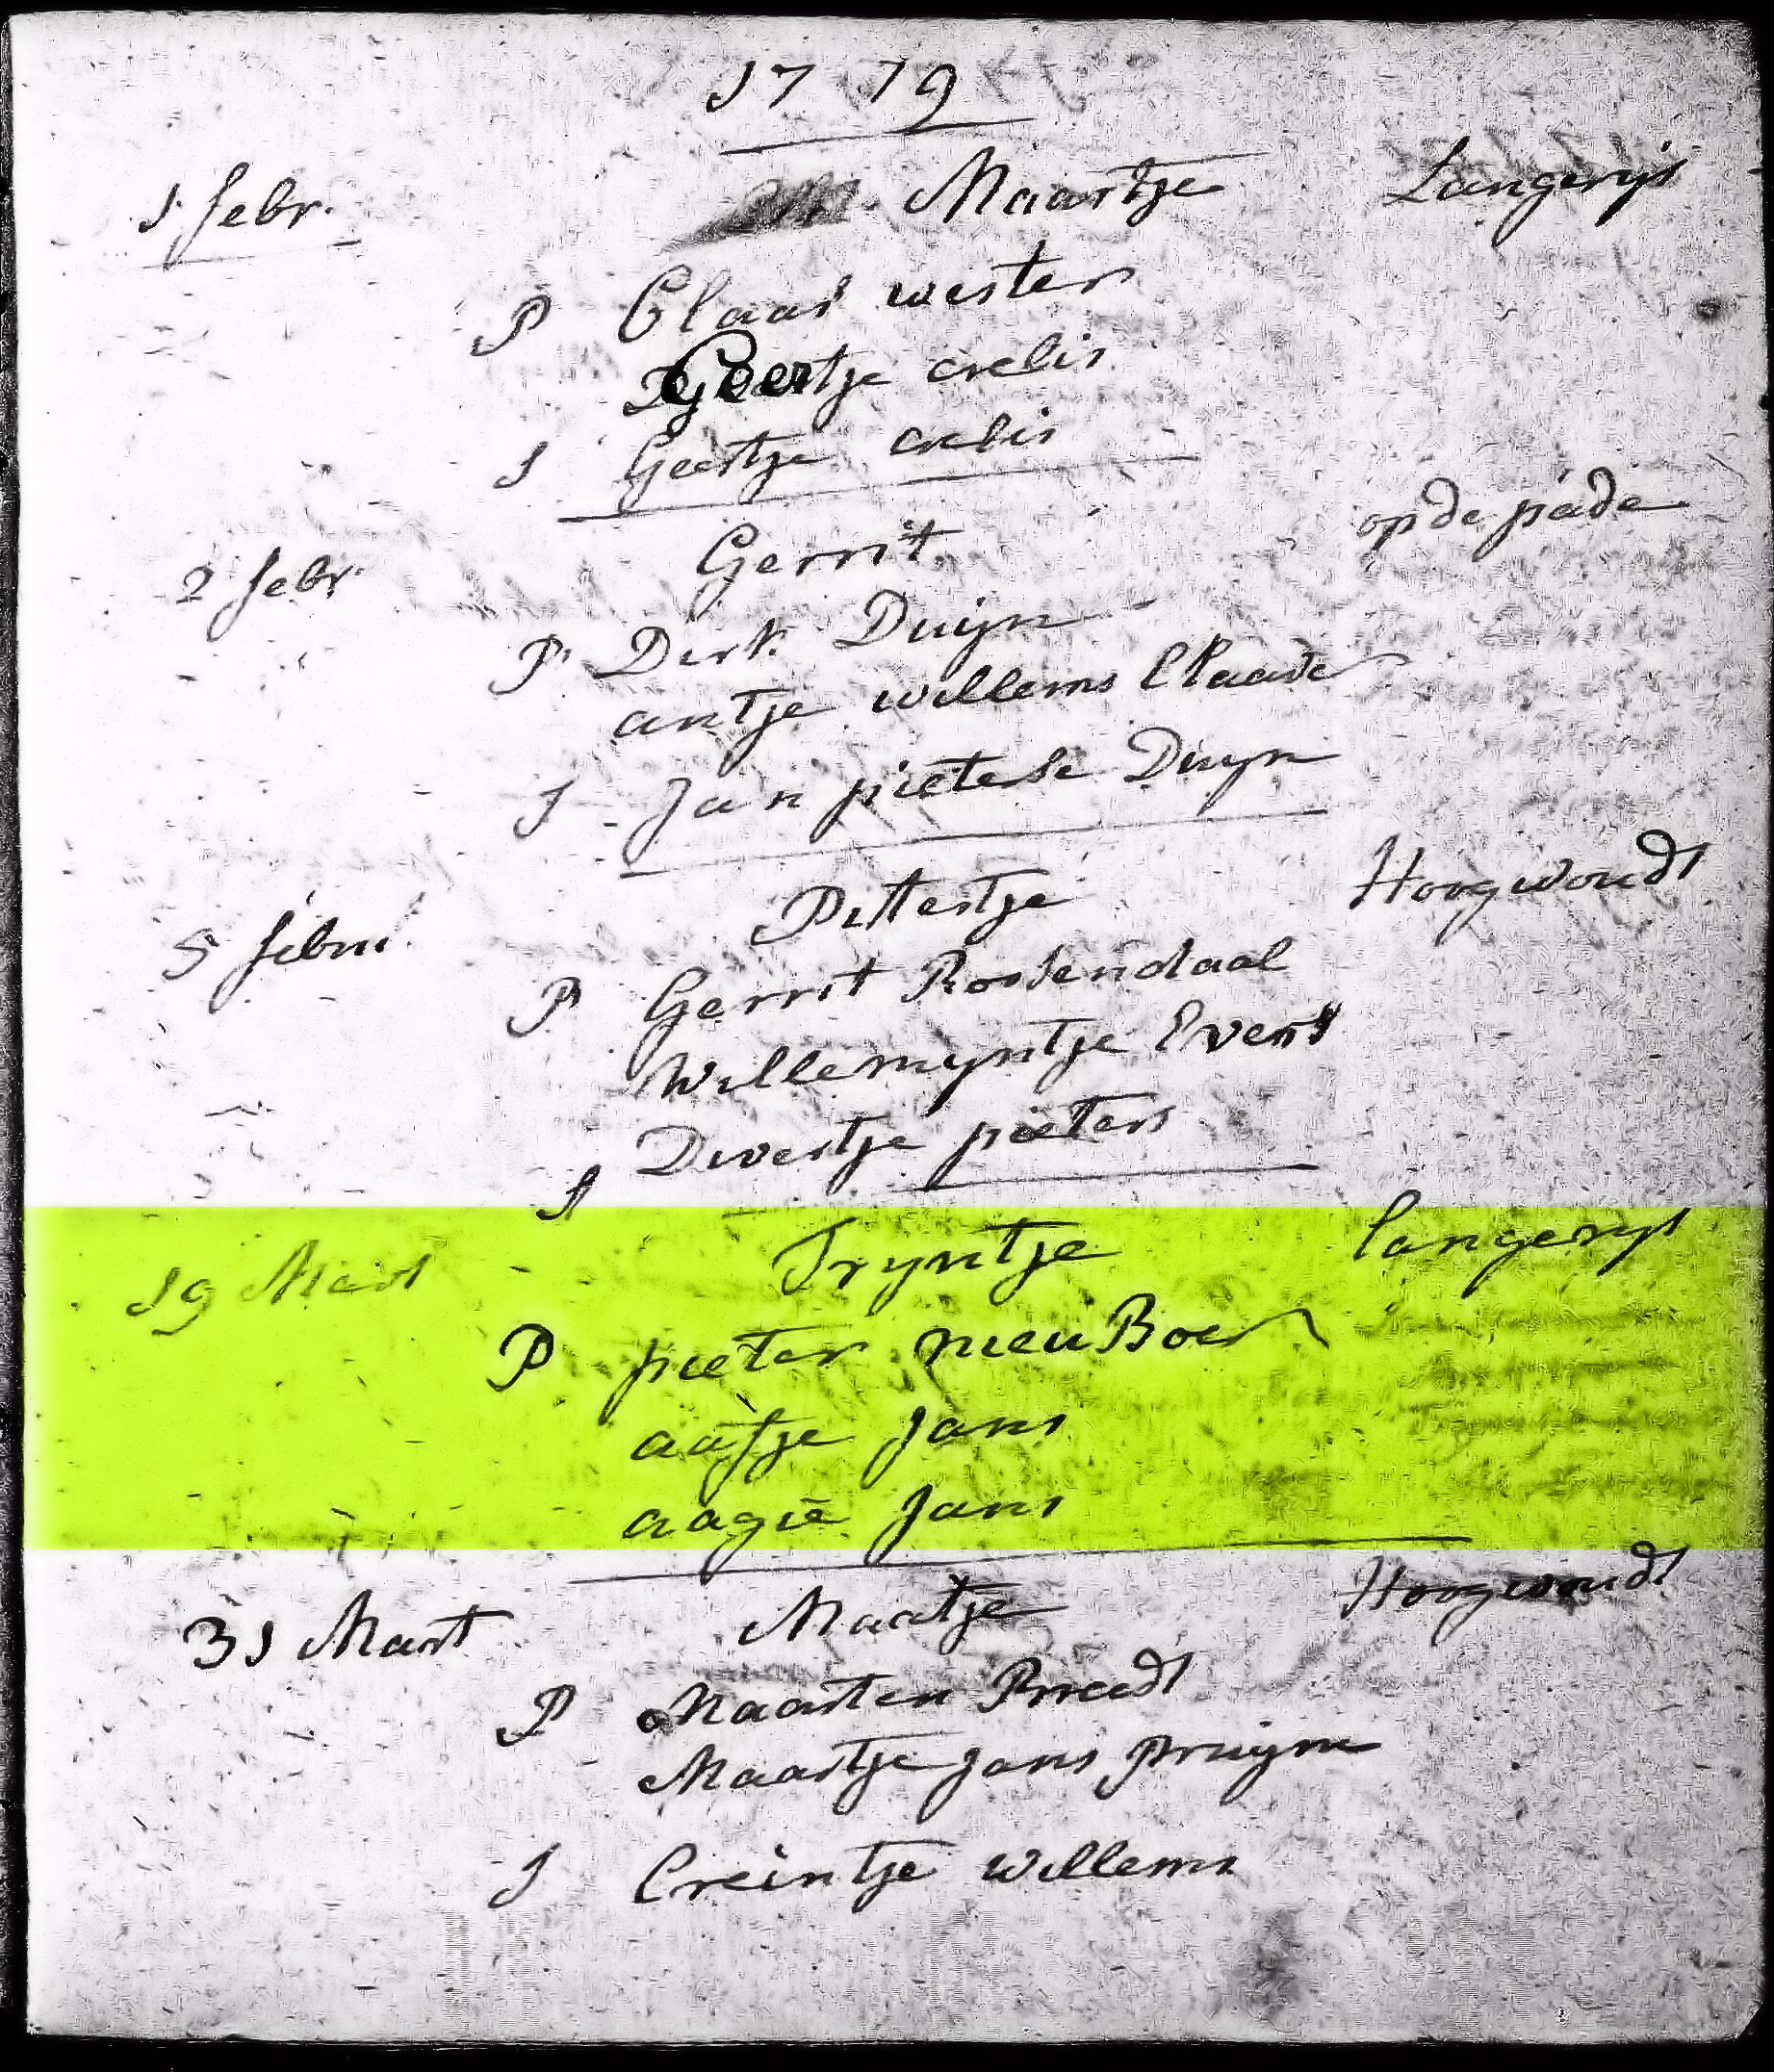 1779
1 febr. Maartje Langerijs
P Claas wester
Geertje crelis
S Geertje crelis
2 febr. Gerrit op de páde
P. Dirk Duijn
antje willems
S Jan pieterse Duyn
5 febru. Pittertje Hoogwoudt
P Gerrit Rosendaal
Willemyntje Evers
S Divertje pieters
19 Mart Tryntje langerys
P pieter nieuBoer
aafje Jans
aagie Jans
31 Mart Maatje Hoogwoudt
P Maarten Breedt
Maartje Jans Pruijm
S Creintje Willems